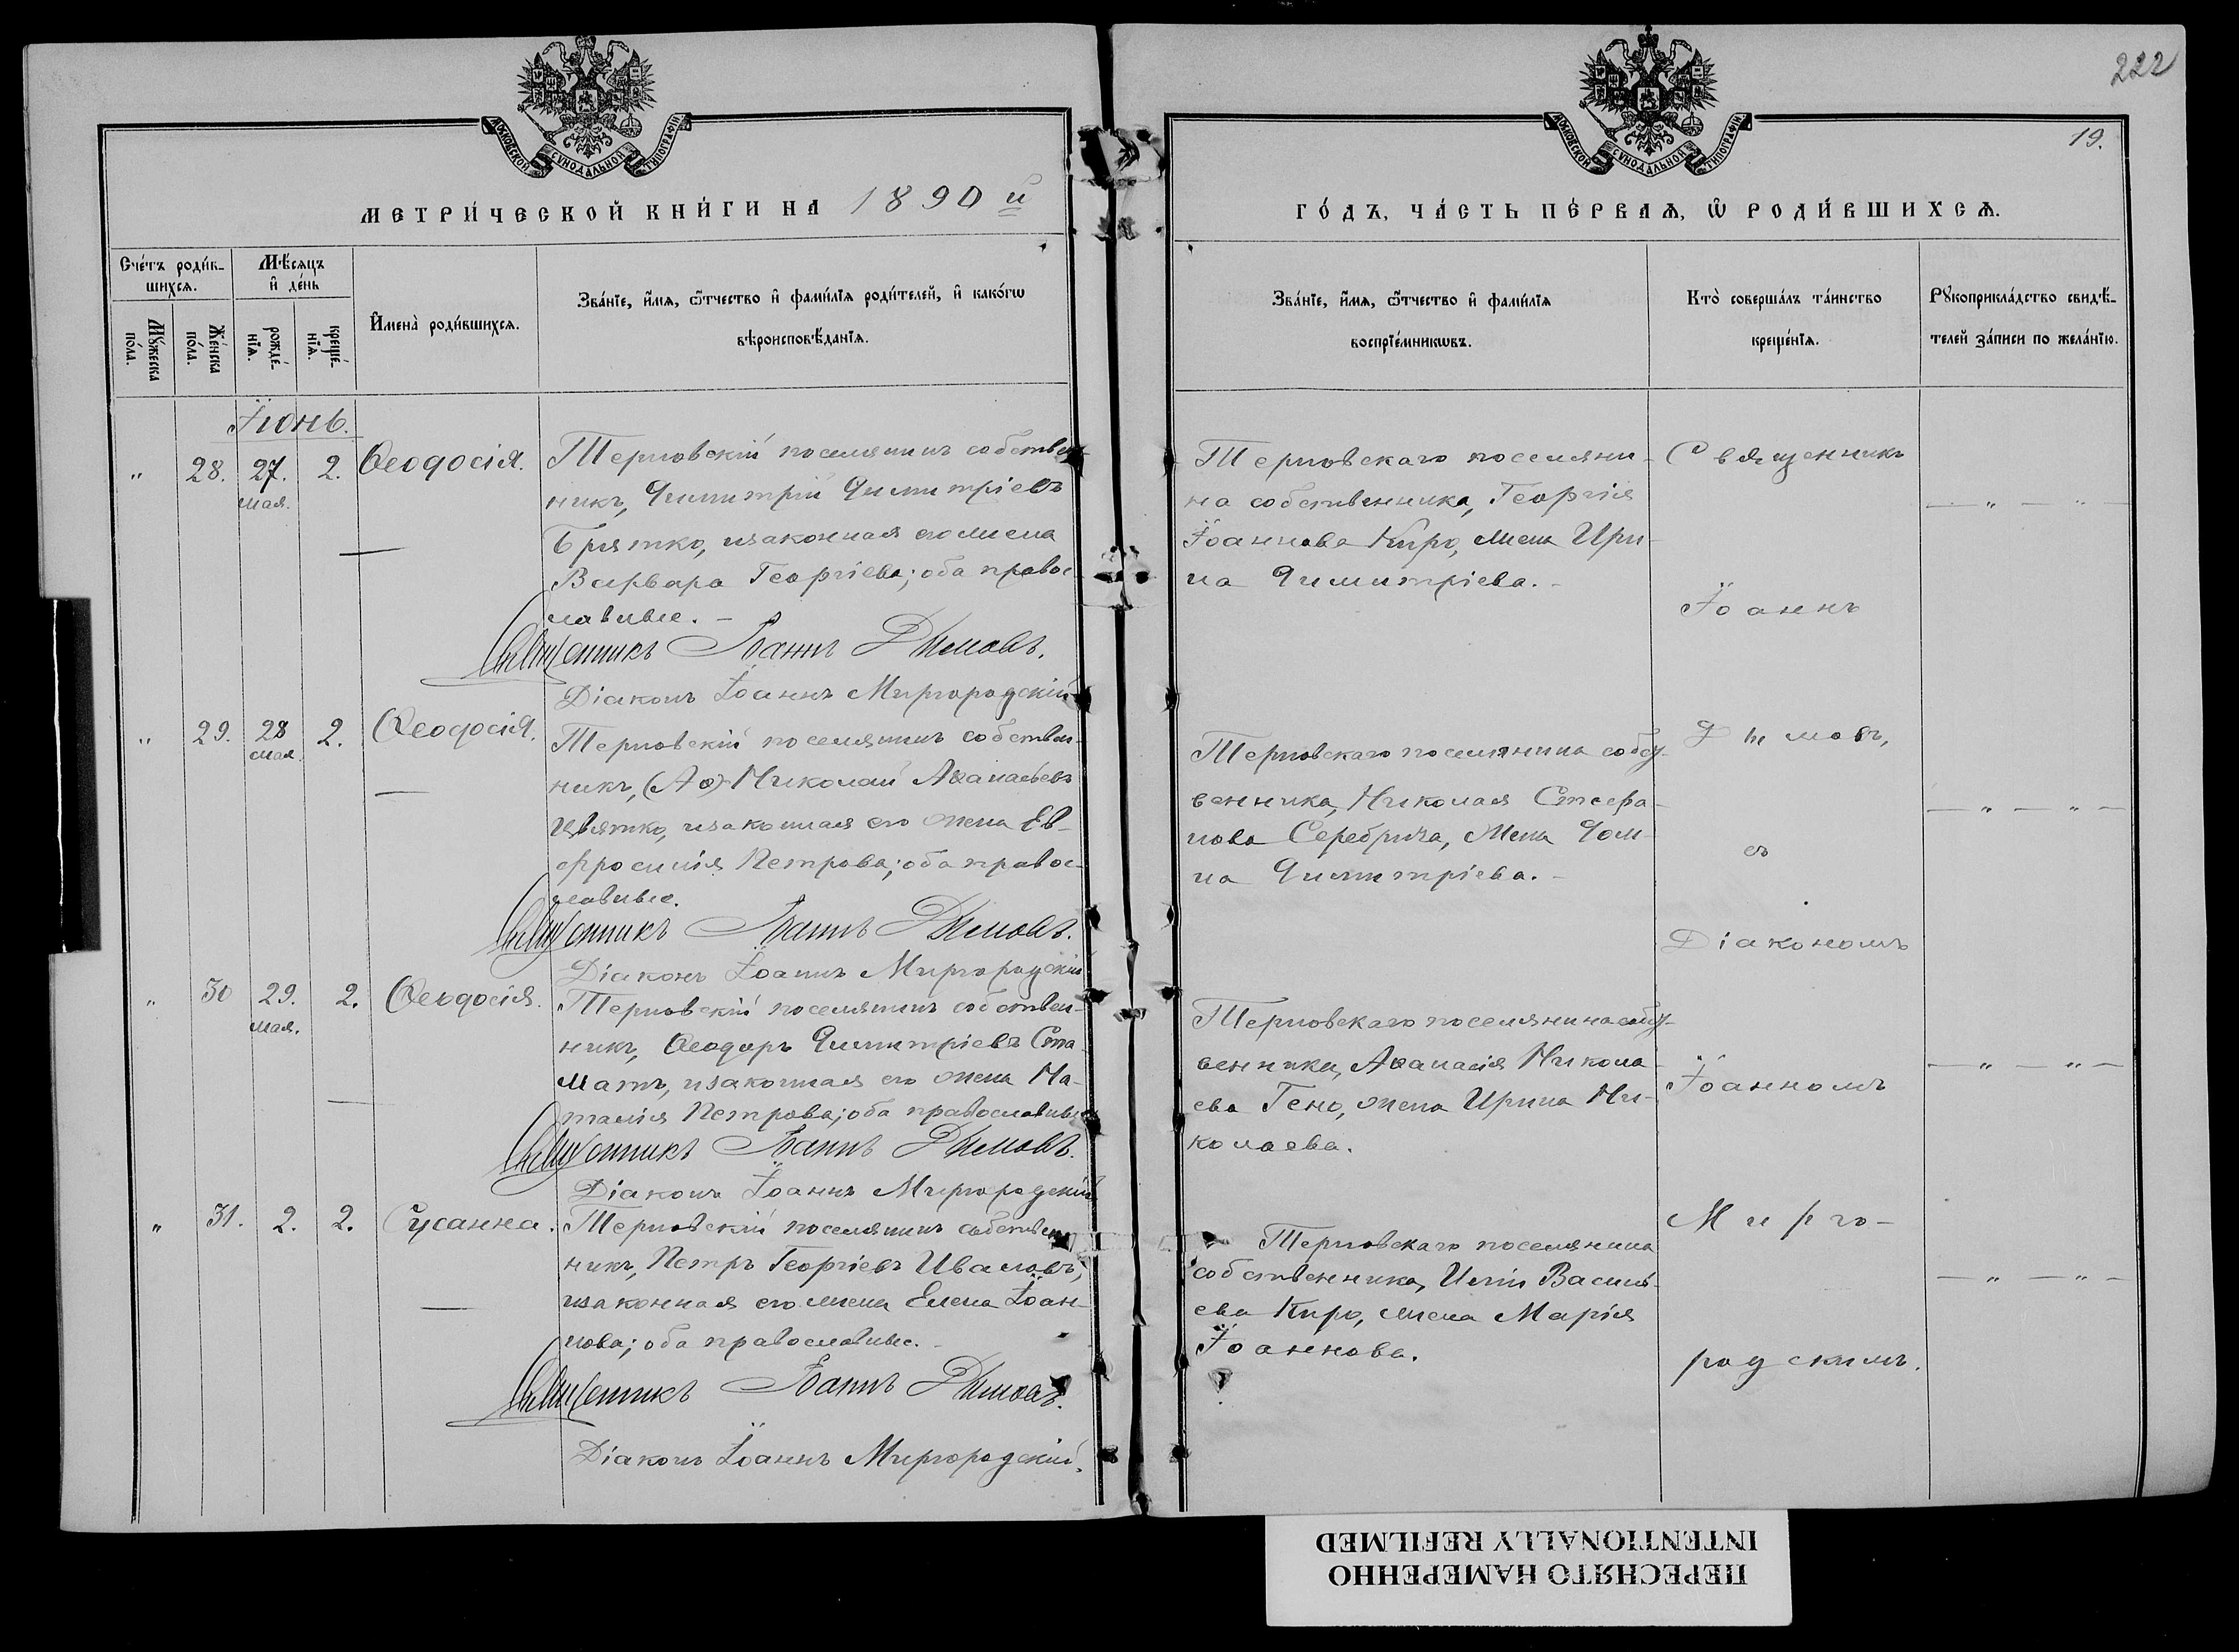 222
19.
МОСКОВСКОЙ СѴНОДАЛЬНОЙ ТИПОГРАФІИ
МОСКОВСКОЙ СѴНОДАЛЬНОЙ ТИПОГРАФІИ
МЕТРИ́ЧЕСКОЙ КНИ́ГИ НА 1890й
ГО́ДЪ, ЧА́СТЬ ПЕ́РВАѦ, Ѡ РОДИ́ВШИХСѦ.
Сче́тъ роди́в-
шихсѧ.
Мѣ́сѧцъ
и де́нь
Мꙋ́жеска
по́ла.
Же́нска
по́ла.
рожде́-
нїѧ.
креще́-
нїѧ.
Имена̀ роди́вшихсѧ.
Зва́нїе, и́мѧ, ѻ́тчество и фами́лїѧ роди́телей, и како́гѡ
вѣроисповѣ́данїѧ.
Зва́нїе, и́мѧ, ѻ́тчество и фами́лїѧ
воспрїе́мникѡвъ.
Кто̀ соверша́лъ та́инство
креще́нїѧ.
Рꙋкоприкла́дство свидѣ́-
телей за́писи по жела́нїю.
Іюнь.
" 28. 27. мая. 2. Ѳеодосія.
Терновскій поселянинъ собствен-
никъ, Димитрій Димитріевъ
Брятко, изаконная его жена
Варвара Георгіева; оба правос-
лавные. –
Священникъ Іоаннъ Димовъ.
Діаконъ Іоаннъ Миргородскій
Терновскаго поселяни-
на собственника, Георгія
Іоаннова Киро, жена Ири-
на Димитріева. –
" 29. 28 мая. 2. Ѳеодосія.
Терновскій поселянинъ собствен-
никъ, Николай Аѳанасьевъ
Цвятко, изаконная его жена Ев-
фросинія Петрова; оба правос-
лавные.
Священникъ Іоаннъ Димовъ.
Діаконъ Іоаннъ Миргородскій
Терновскаго поселянина собст-
венника, Николая Стефа-
нова жена Дом-
на Димитріева. –
" 30 29. мая. 2. Ѳеодосія.
Терновскій поселянинъ собствен-
никъ, Ѳеодоръ Димитріевъ Ста-
матъ, изаконная его жена На-
талія Петрова; оба православные
Священникъ Іоаннъ Димовъ.
Діаконъ Іоаннъ Миргородскій
Терновскаго поселянина собст-
венника, Аѳанасія Никола-
ева Гено, жена Ирина Ни-
колаева.
" 31. 2. 2. Сусанна.
Терновскій поселянинъ собствен-
никъ, Петръ Георгіевъ Ивановъ,
изаконная его жена Елена Іоан-
нова; оба православные. –
Священникъ Іоаннъ Димовъ.
Діаконъ Іоаннъ Миргородскій.
Терновскаго поселянина
собственника, Иліи Василь-
ева Киро, жена Марія
Іоаннова.
Священникъ
Іоаннъ
Димовъ,
съ
Діакономъ
Іоанномъ
Мирго-
родскимъ.
ПЕРЕСНЯТО НАМЕРЕННО
INTENTIONALLY REFILMED